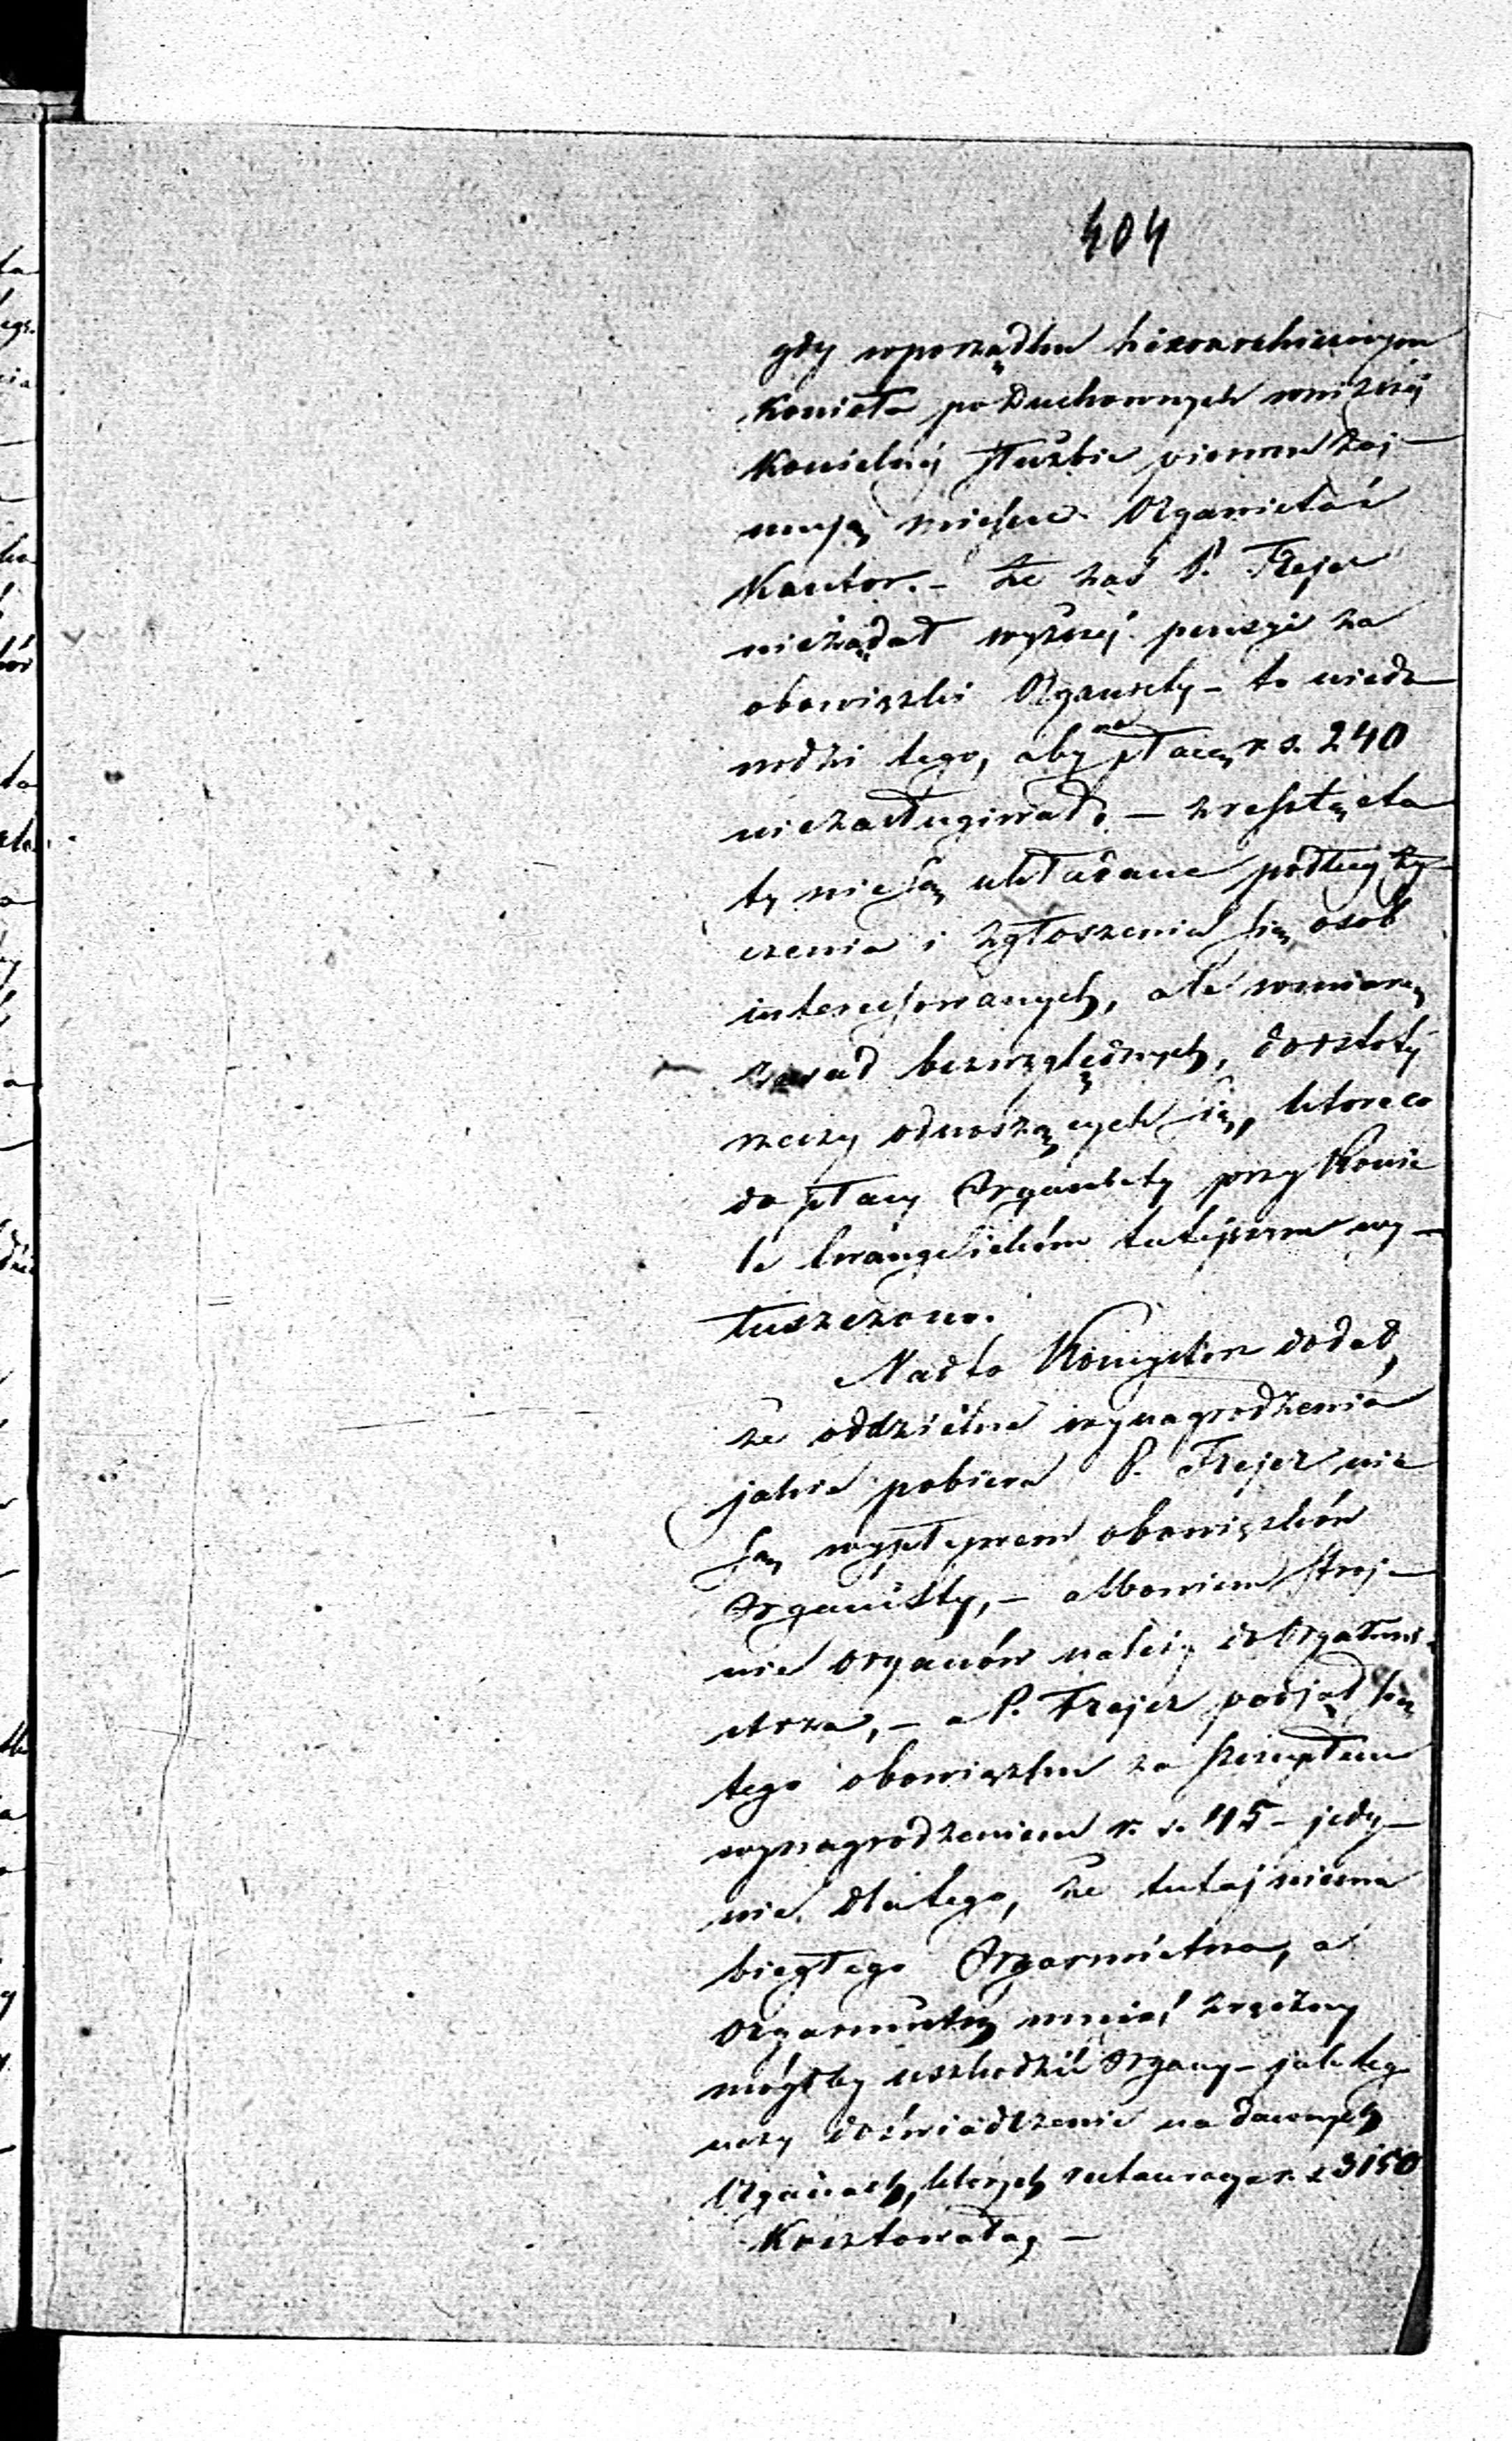 404
gdy wporządku hierarchicznym
Kościoła po Duchownych wniższéj
Kościelnéj służbie pierwsze zaj-
mują miejsce Organista i
Kantor. – Że zaś P. Frejer
nieżądał wyższéj pensyi za
obowiązki Organisty – to niedo
wodzi tego, aby na płacę r. s. 240
niezasługiwał. – zresztą eta
ty nie są układane podług ży-
czenia i zgłoszenia się osob
interesowanych, ale wmiarę
zasad bezwzględnych, do istoty
rzeczy odnoszących się, które co
do płacy Organisty przy Kościo
le Ewangelickim tutejszym wy-
łuszczono.
Nadto Konsystorz dodał,
że oddzielne wynagrodzenia
jakie pobiera P. Frejer nie
są wypływem obowiązków
Organisty, – albowiem stroje-
nie organów należy do Organmi-
strza, – a P. Frejer podjął się
tego obowiązku za szczupłem
wynagrodzeniem r. s. 45 – jedy-
nie dla tego, że tutaj niema
biegłego Organmistrza, a
organmistrz mniéj zręczny
mógłby uszkodzić organy – jak tego
uczy doświadczenie na dawnych
Organach, których restauracya r. s. 3150
Kosztowała, –